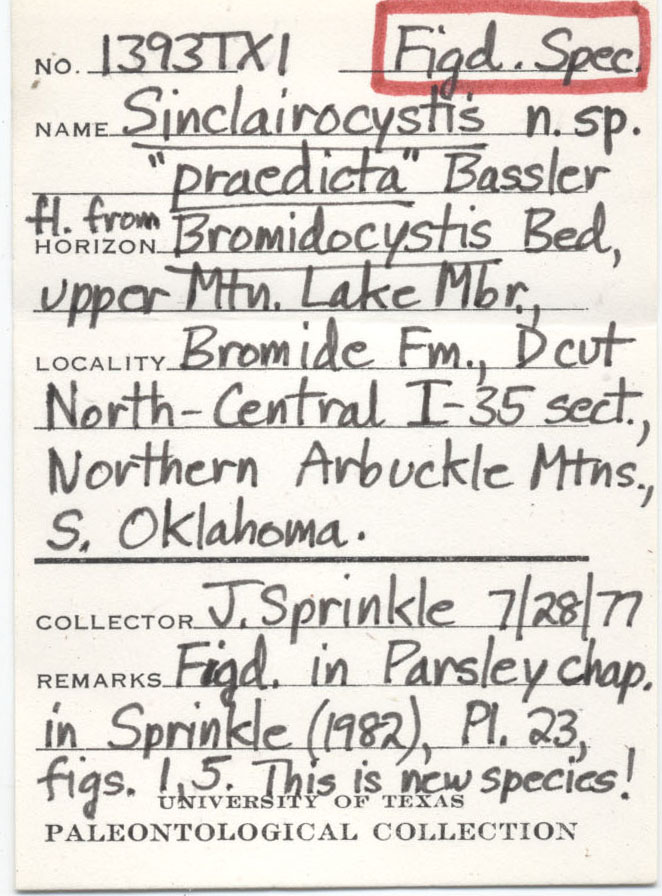 NO. 1393TX1 Figd. Spec.
NAME Sinclairocystis n. sp.
"praedicta" Bassler
fl. from
HORIZON Bromidocystis Bed,
upper Mtn. Lake Mbr.,
LOCALITY Bromide Fm., D cut
North-Central I-35 sect.,
Northern Arbuckle Mtns.,
S. Oklahoma.
COLLECTOR J. Sprinkle 7/28/77
REMARKS Figd. in Parsley chap.
in Sprinkle (1982), Pl. 23,
figs. 1, 5. This is new species!
UNIVERSITY OF TEXAS
PALEONTOLOGICAL COLLECTION